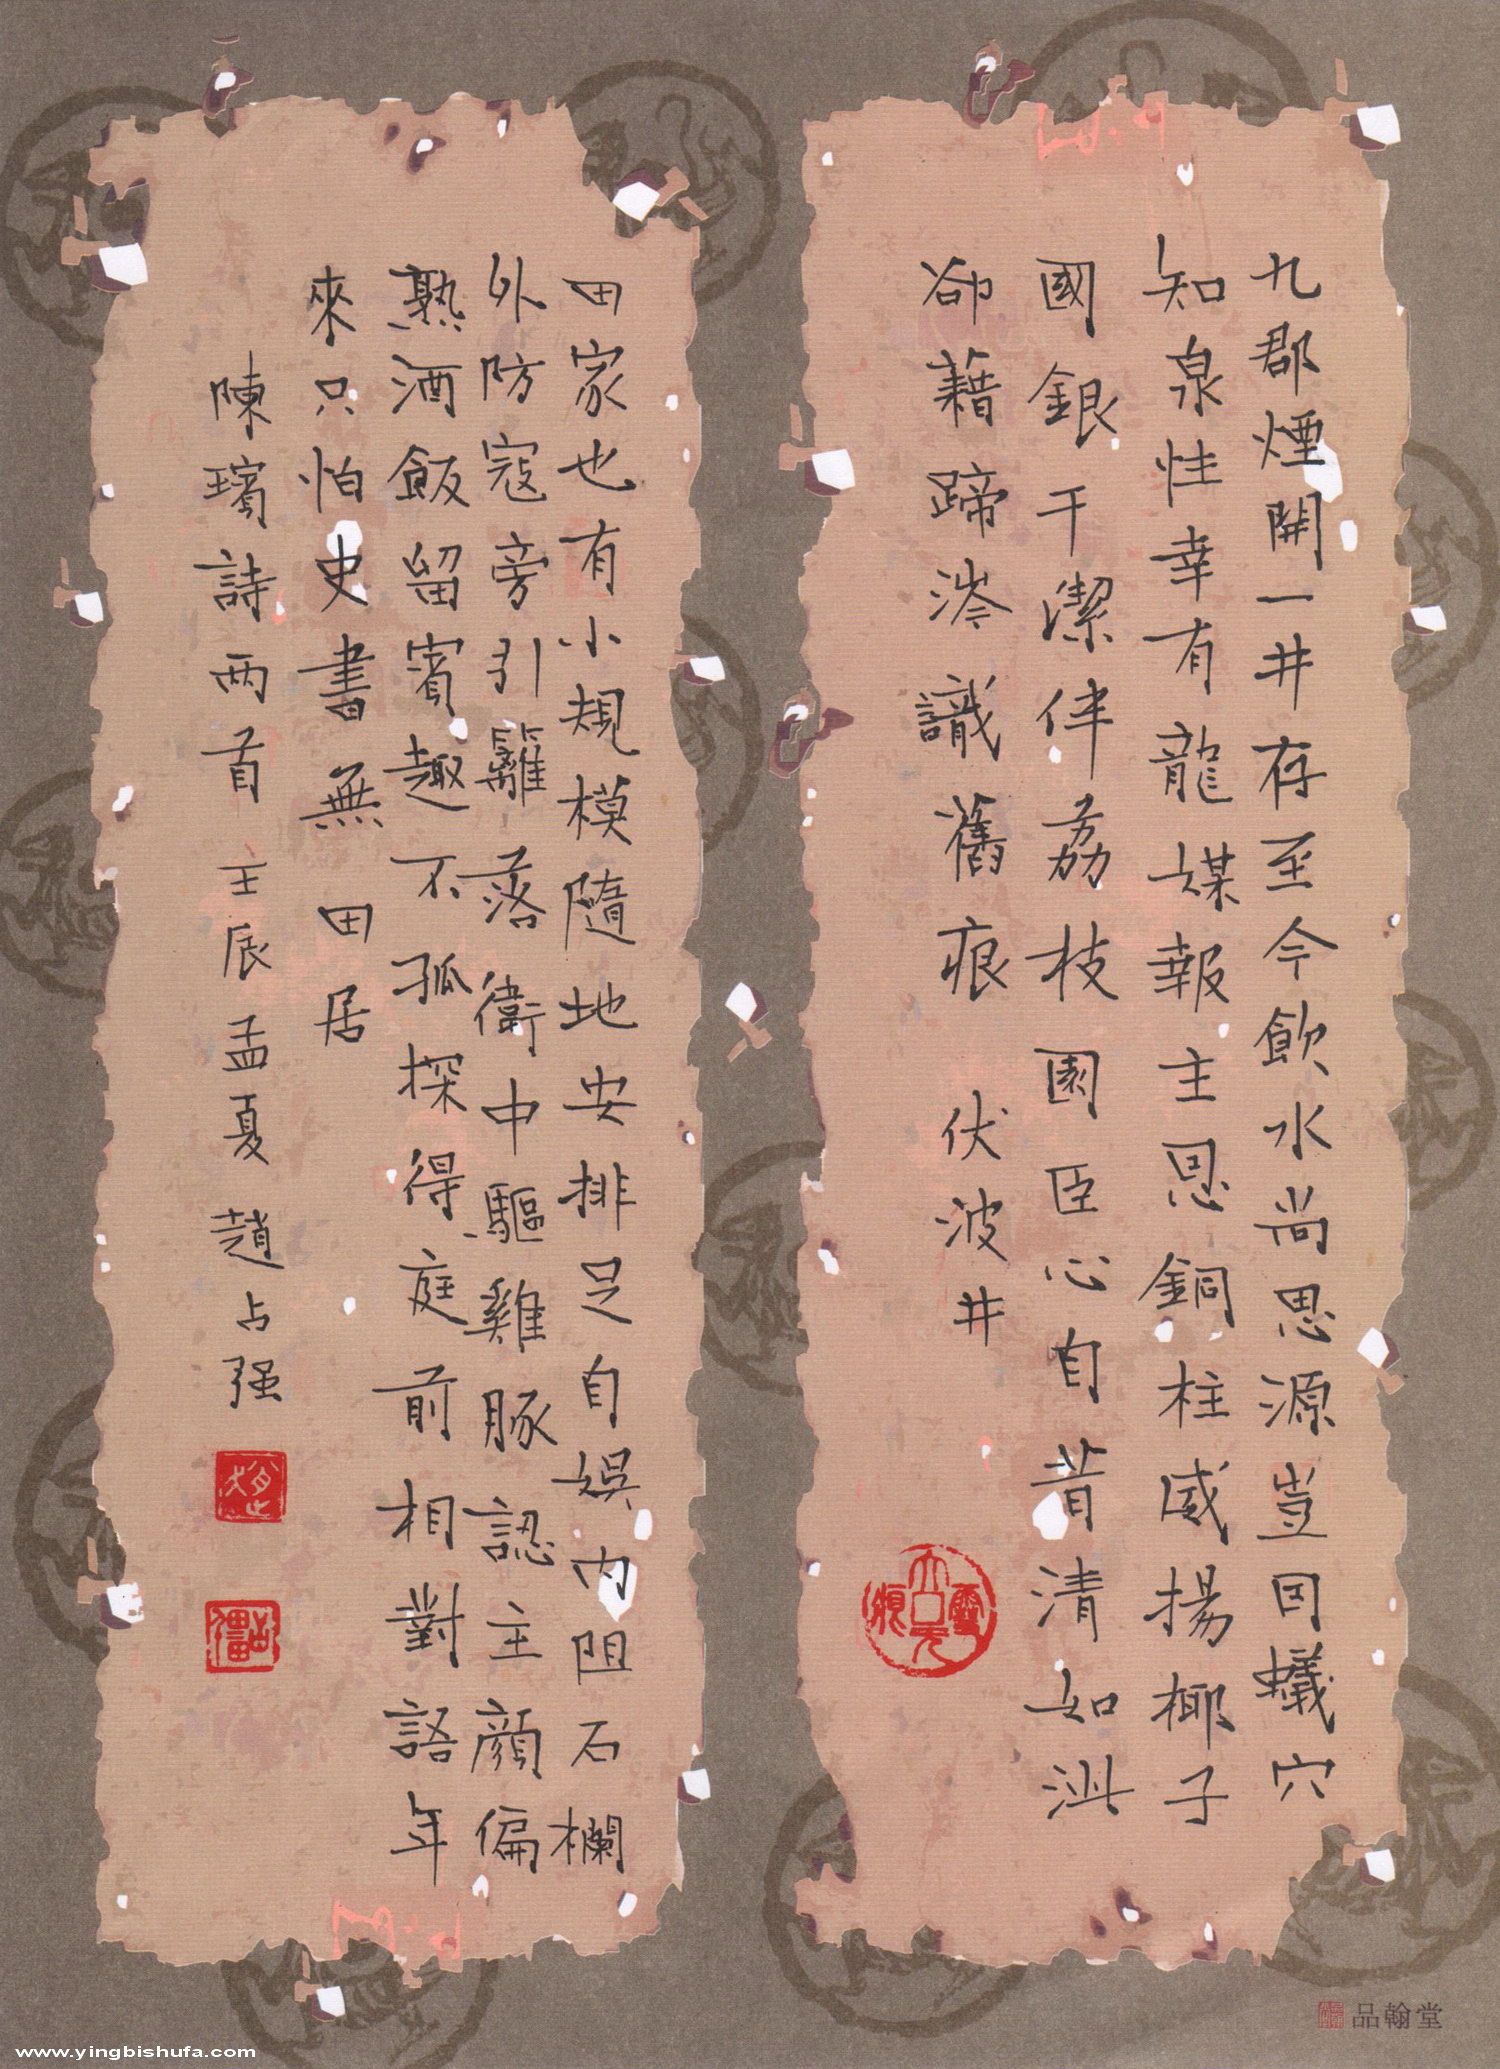 九郡煙開一井存至今飲水尚思源豈因蟻穴
知泉性幸有龍媒報主恩銅柱威揚椰子
國銀干潔伴荔枝園臣心自昔清如沘
卻藉蹄涔識舊痕 伏波井
田家也有小規模隨地安排足自娛內阻石欄
外防寇旁引籬落衛中驅雞豚認主顏偏
熟酒飯留賓趣不孤探得庭前相對語年
來只怕史書無 田居
陳璸詩兩首 壬辰孟夏 趙占强
品翰堂
www.yingbishufa.com